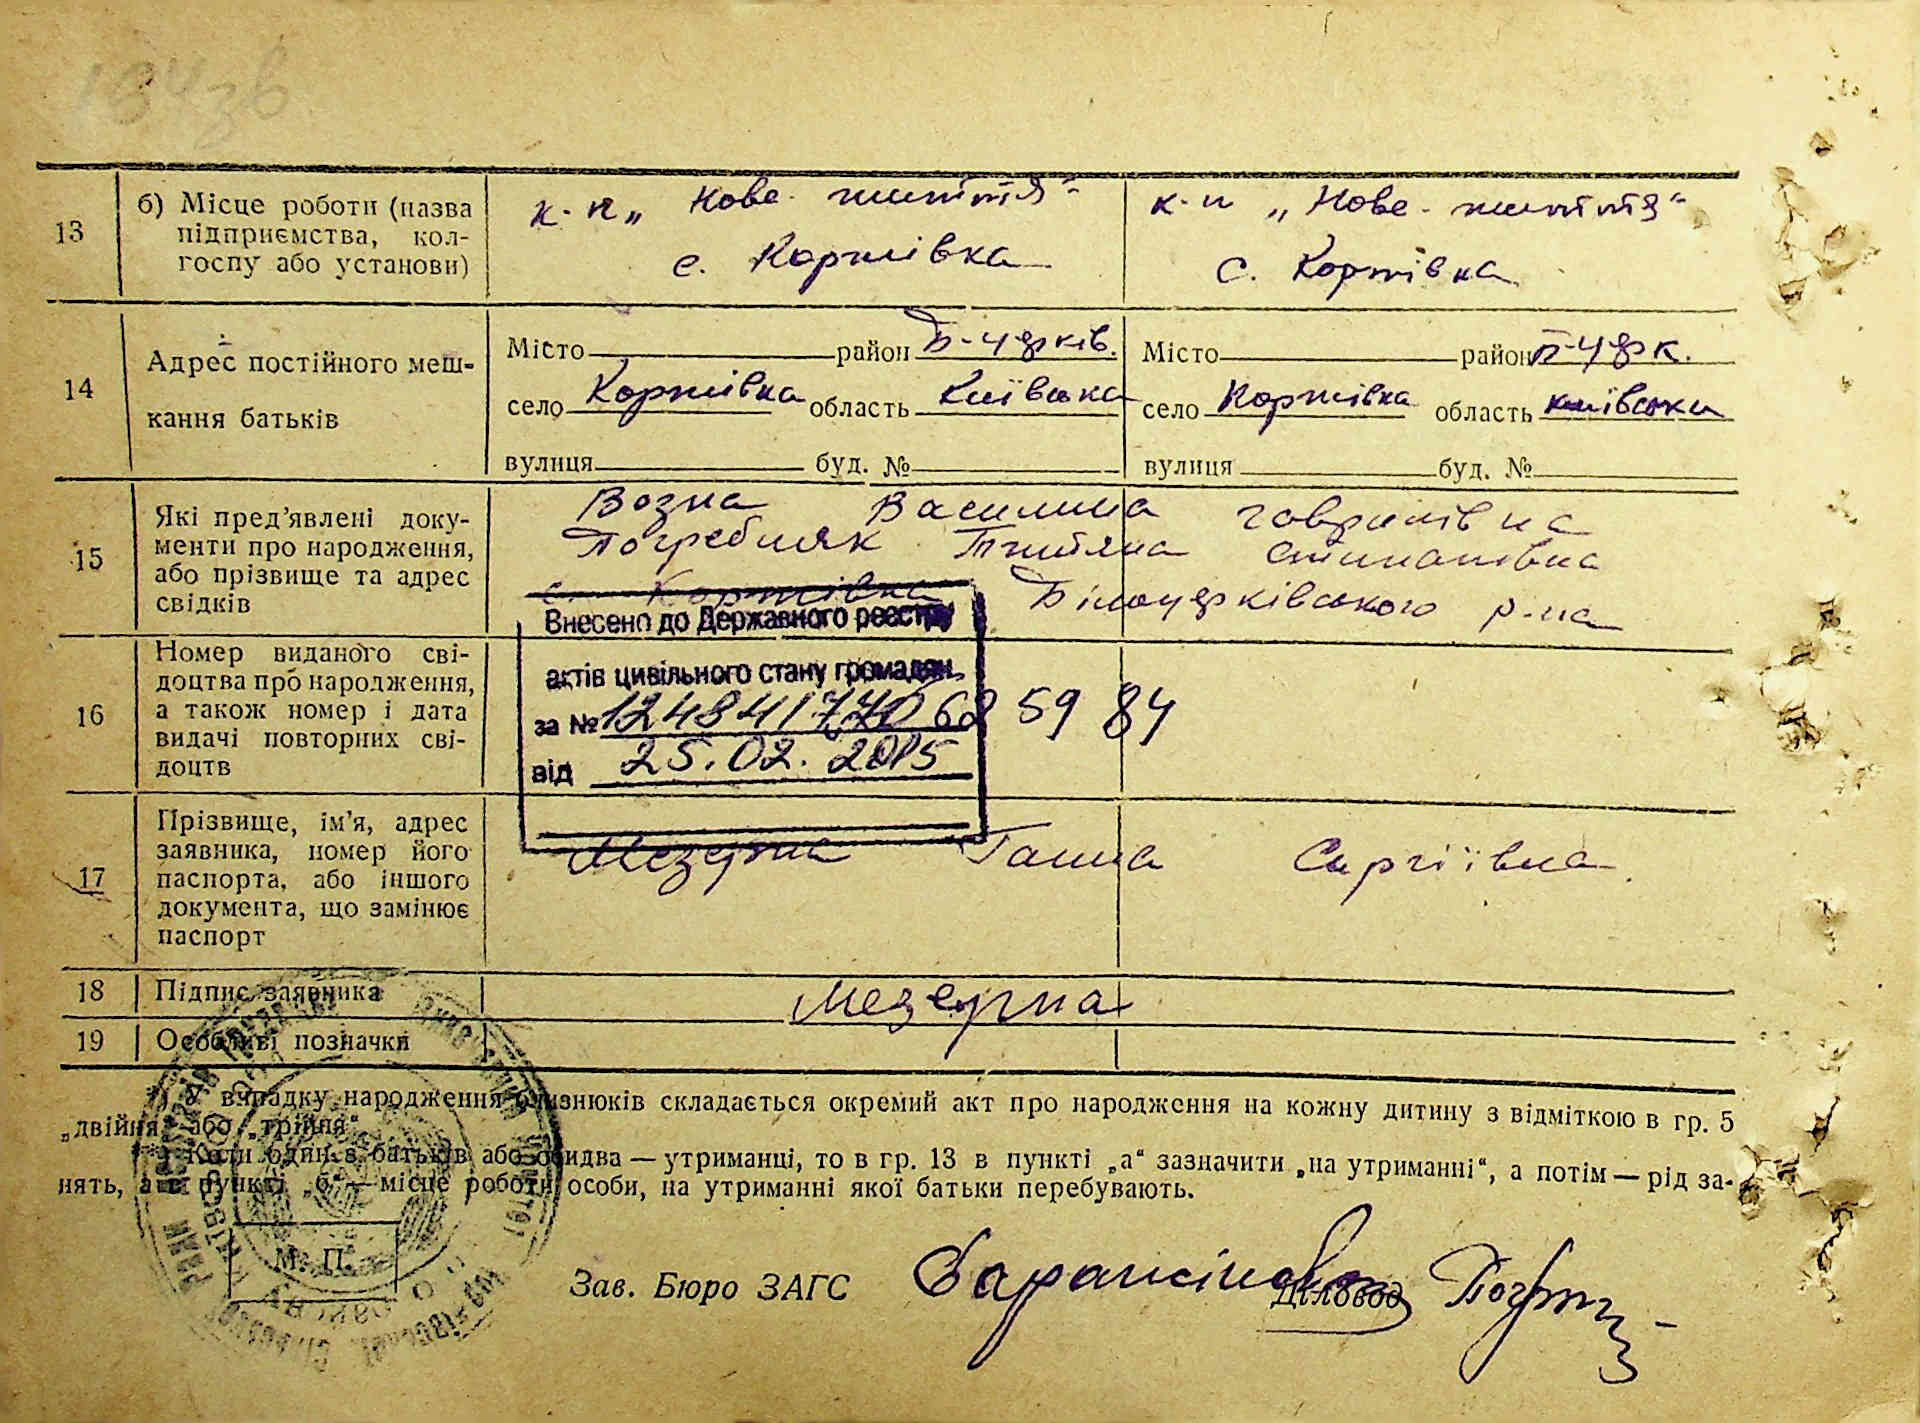 134зв
13
б) Місце роботи (назва
підприємства, кол-
госпу або установи)
к-п „Нове-життя“
с. Коржівка
к-п „Нове-життя“
с. Коржівка
14
Адрес постійного меш-
кання батьків
Місто район Б-Церків.
село Коржівка область Київська
вулиця буд. №
Місто район Б-Церк.
село Коржівка область Київська
вулиця буд. №
15
Які пред’явлені доку-
менти про народження,
або прізвище та адрес
свідків
Возна Василина Гаврилівна
Погребняк Тетяна Степанівна
с. Коржівка Білоцерківського р-на
Внесено до Державного реєстру
актів цивільного стану громадян
за № 124841770685984
від 25.02.2015
16
Номер виданого сві-
доцтва про народження,
а також номер і дата
видачі повторних сві-
доцтв
17
Прізвище, ім’я, адрес
заявника, номер його
паспорта, або іншого
документа, що замінює
паспорт
Мезерна Ганна Сергіївна
18 Підпис заявника
Мезерна
19 Особливі позначки
*) У випадку народження близнюків складається окремий акт про народження на кожну дитину з відміткою в гр. 5
„двійня“ або „трійня“
Коли один з батьків або обидва — утриманці, то в гр. 13 в пункті „а“ зазначити „на утриманні“, а потім — рід за-
нять, а в пункті „б“ — місце роботи особи, на утриманні якої батьки перебувають.
М. П.
Зав. Бюро ЗАГС
Діловод